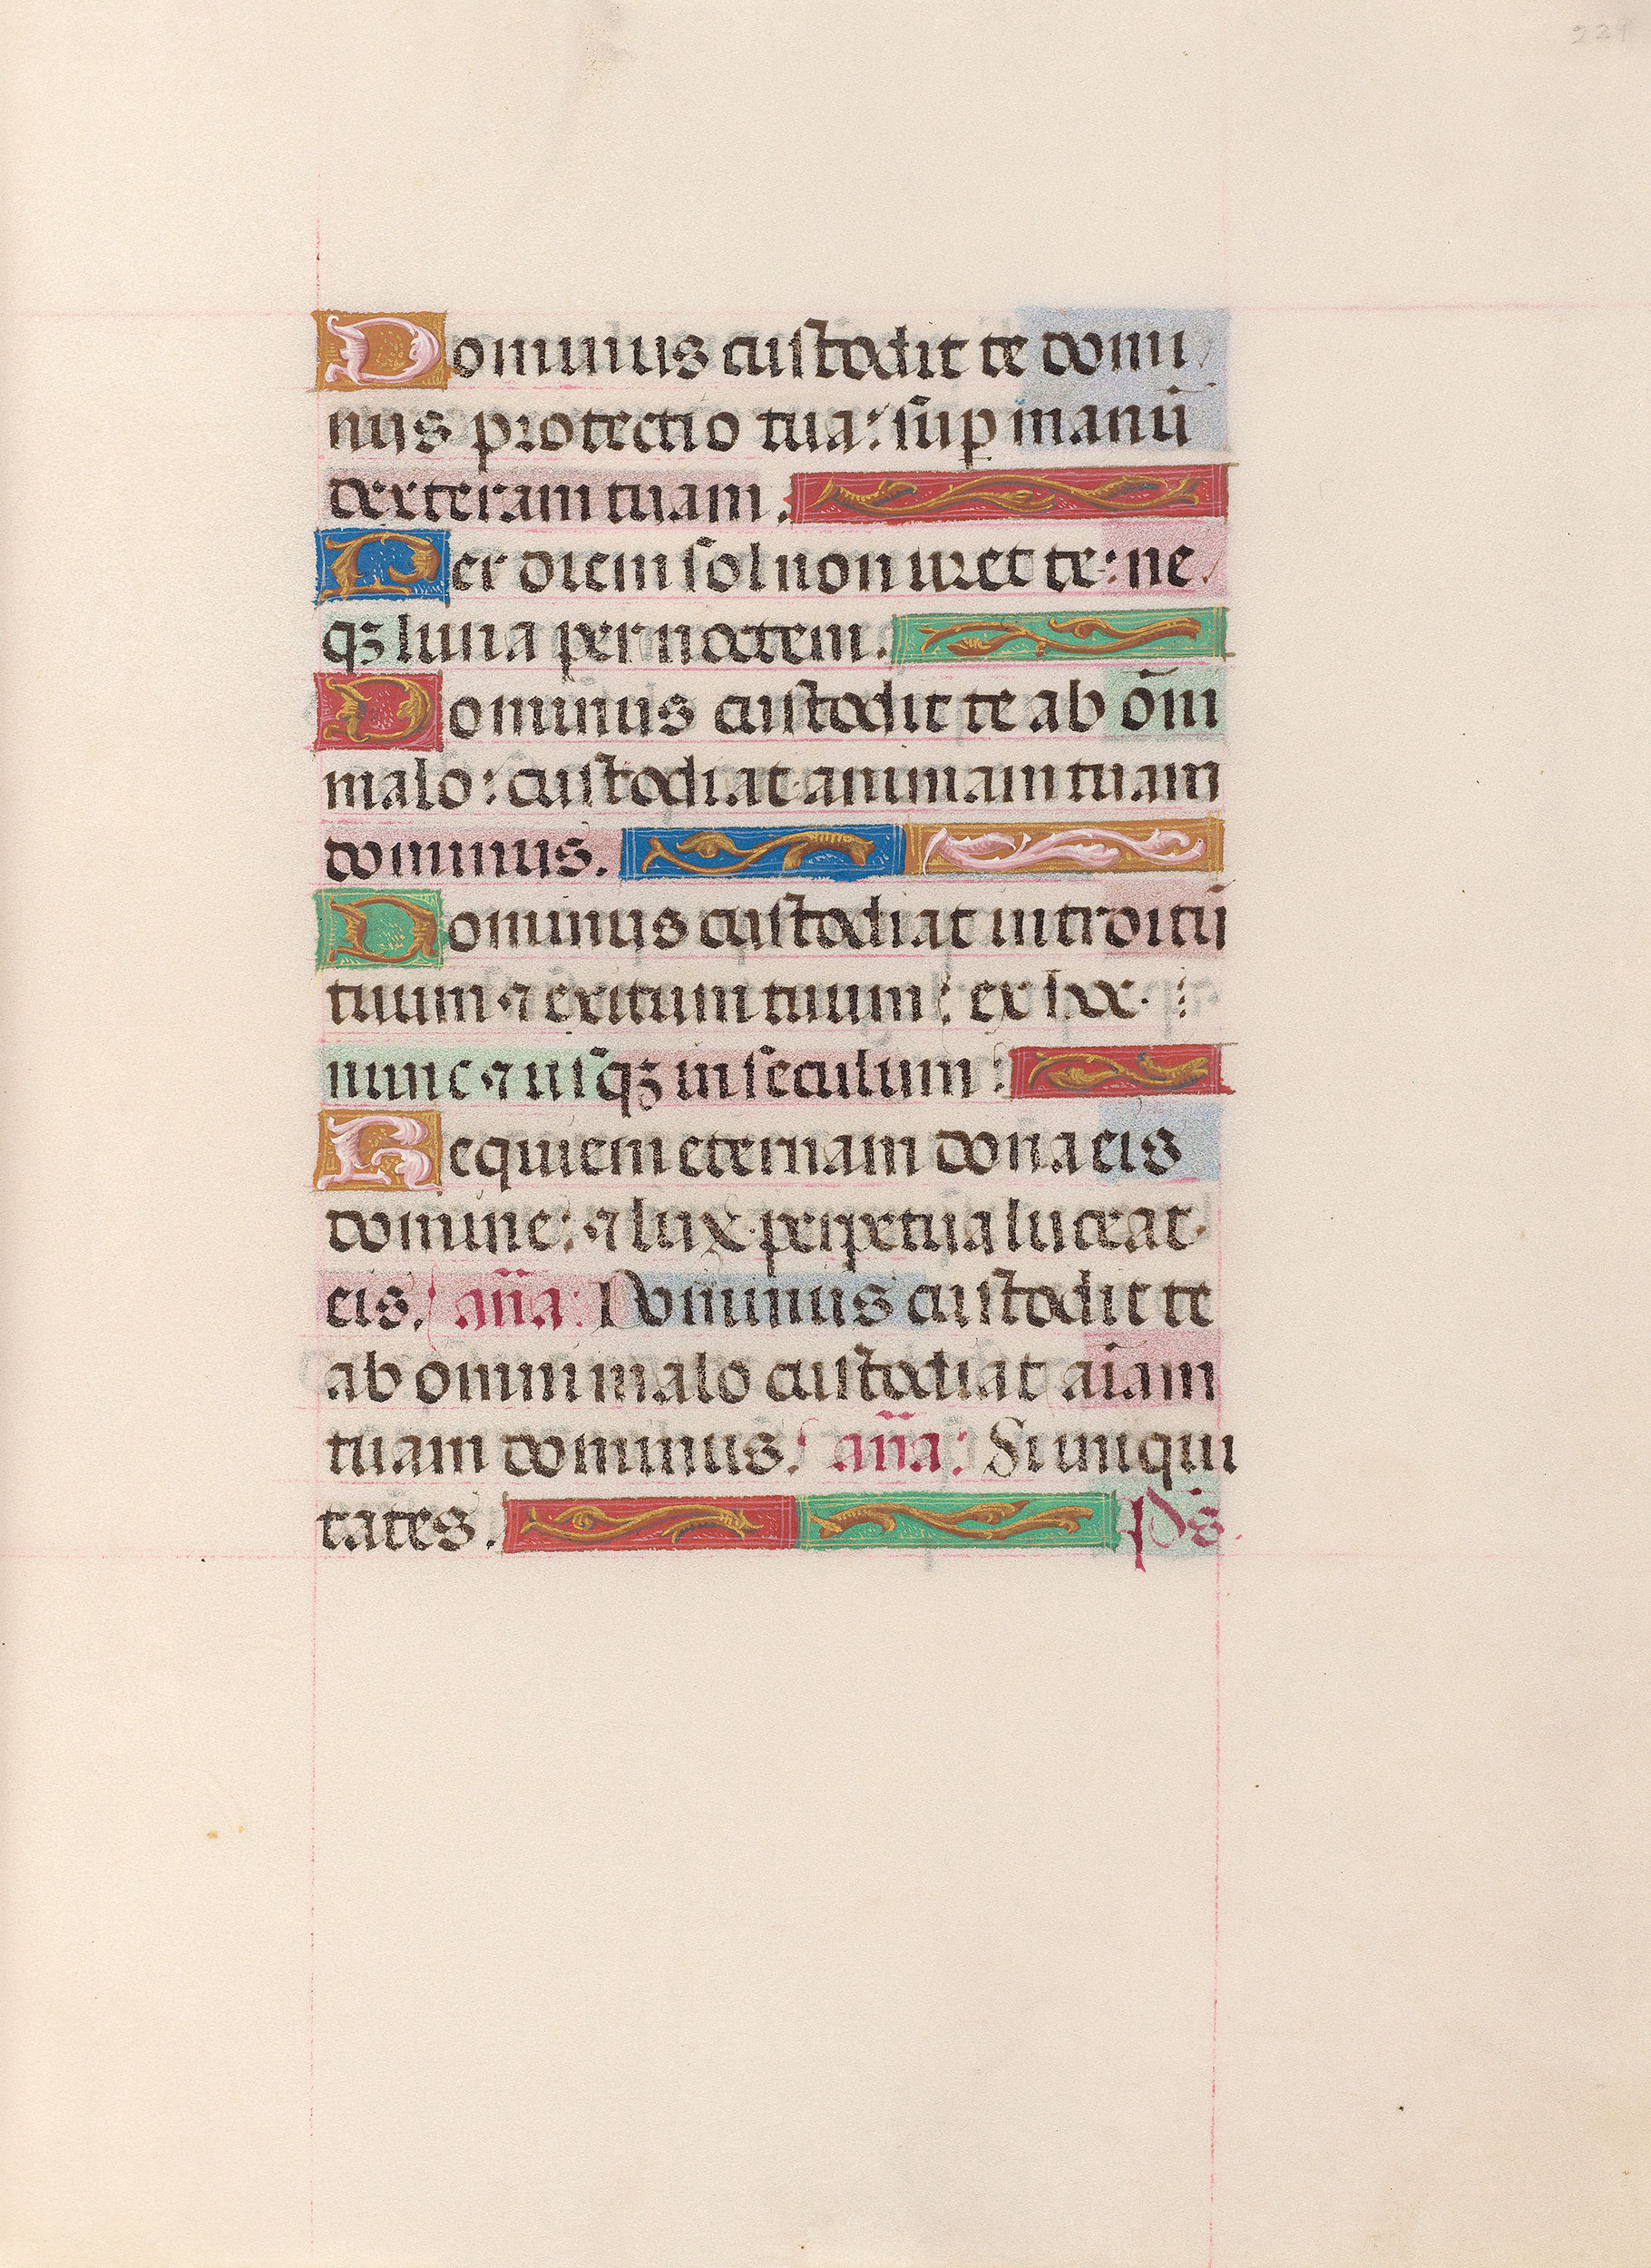 221
Dominus custodit te domi
nus protectio tua: sup manū
dexteram tuam.
Per diem sol non uret te: ne
qꝫ luna per noctem.
Dominus custodit te ab om̄
malo: custodiat animam tuam
dominus.
Dominus custodiat introitū
tuum ⁊ exitum tuum: ex hoc
nunc ⁊ usqꝫ in seculum:
Requiem eternam dona eis
domine: ⁊ lux perpetua luceat
eis. an̄a: Dominus custodit te
ab omni malo custodiat aīam
tuam dominus. an̄a: Si iniqui
tates. Ps̄.